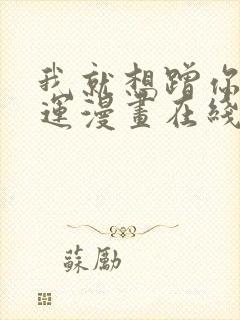 我就想蹭你
運漫畫在綫
蘇勵